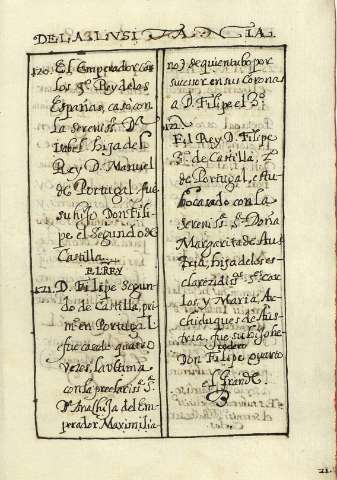 DE LA LUSITANIA.
120. El Emperador Car
los 5º Rey delas
Españas, caso con
la sereniss. Dª
Isabel hija del
Rey D. Manuel
de Portugal, fue
su hijo Don Fili
pe el Segundo de
Castilla.
EL REY
121. D. Filipe Segun
do de Castilla, pri
mº en Portugal
e fue casado quatro
vezes, la ultima
con la preclariss. S.
Dª Ana hija del Em
perador Maximilia
no, de quien tubo por
sucesor en sus Coronas
a D. Filipe el 3º
122.
El Rey D. Filipe
3º de Castilla, 2º
de Portugal, estu
bo casado con la
sereniss. Sª Doña
Margarita de Aus
tria, hija de los es
clarezidisˢ sˢ Car
los, y Maria Ar
chiduques de Aus
tria, fue su hijo he
redero
Don Filipe quarto
el Grande.
21.